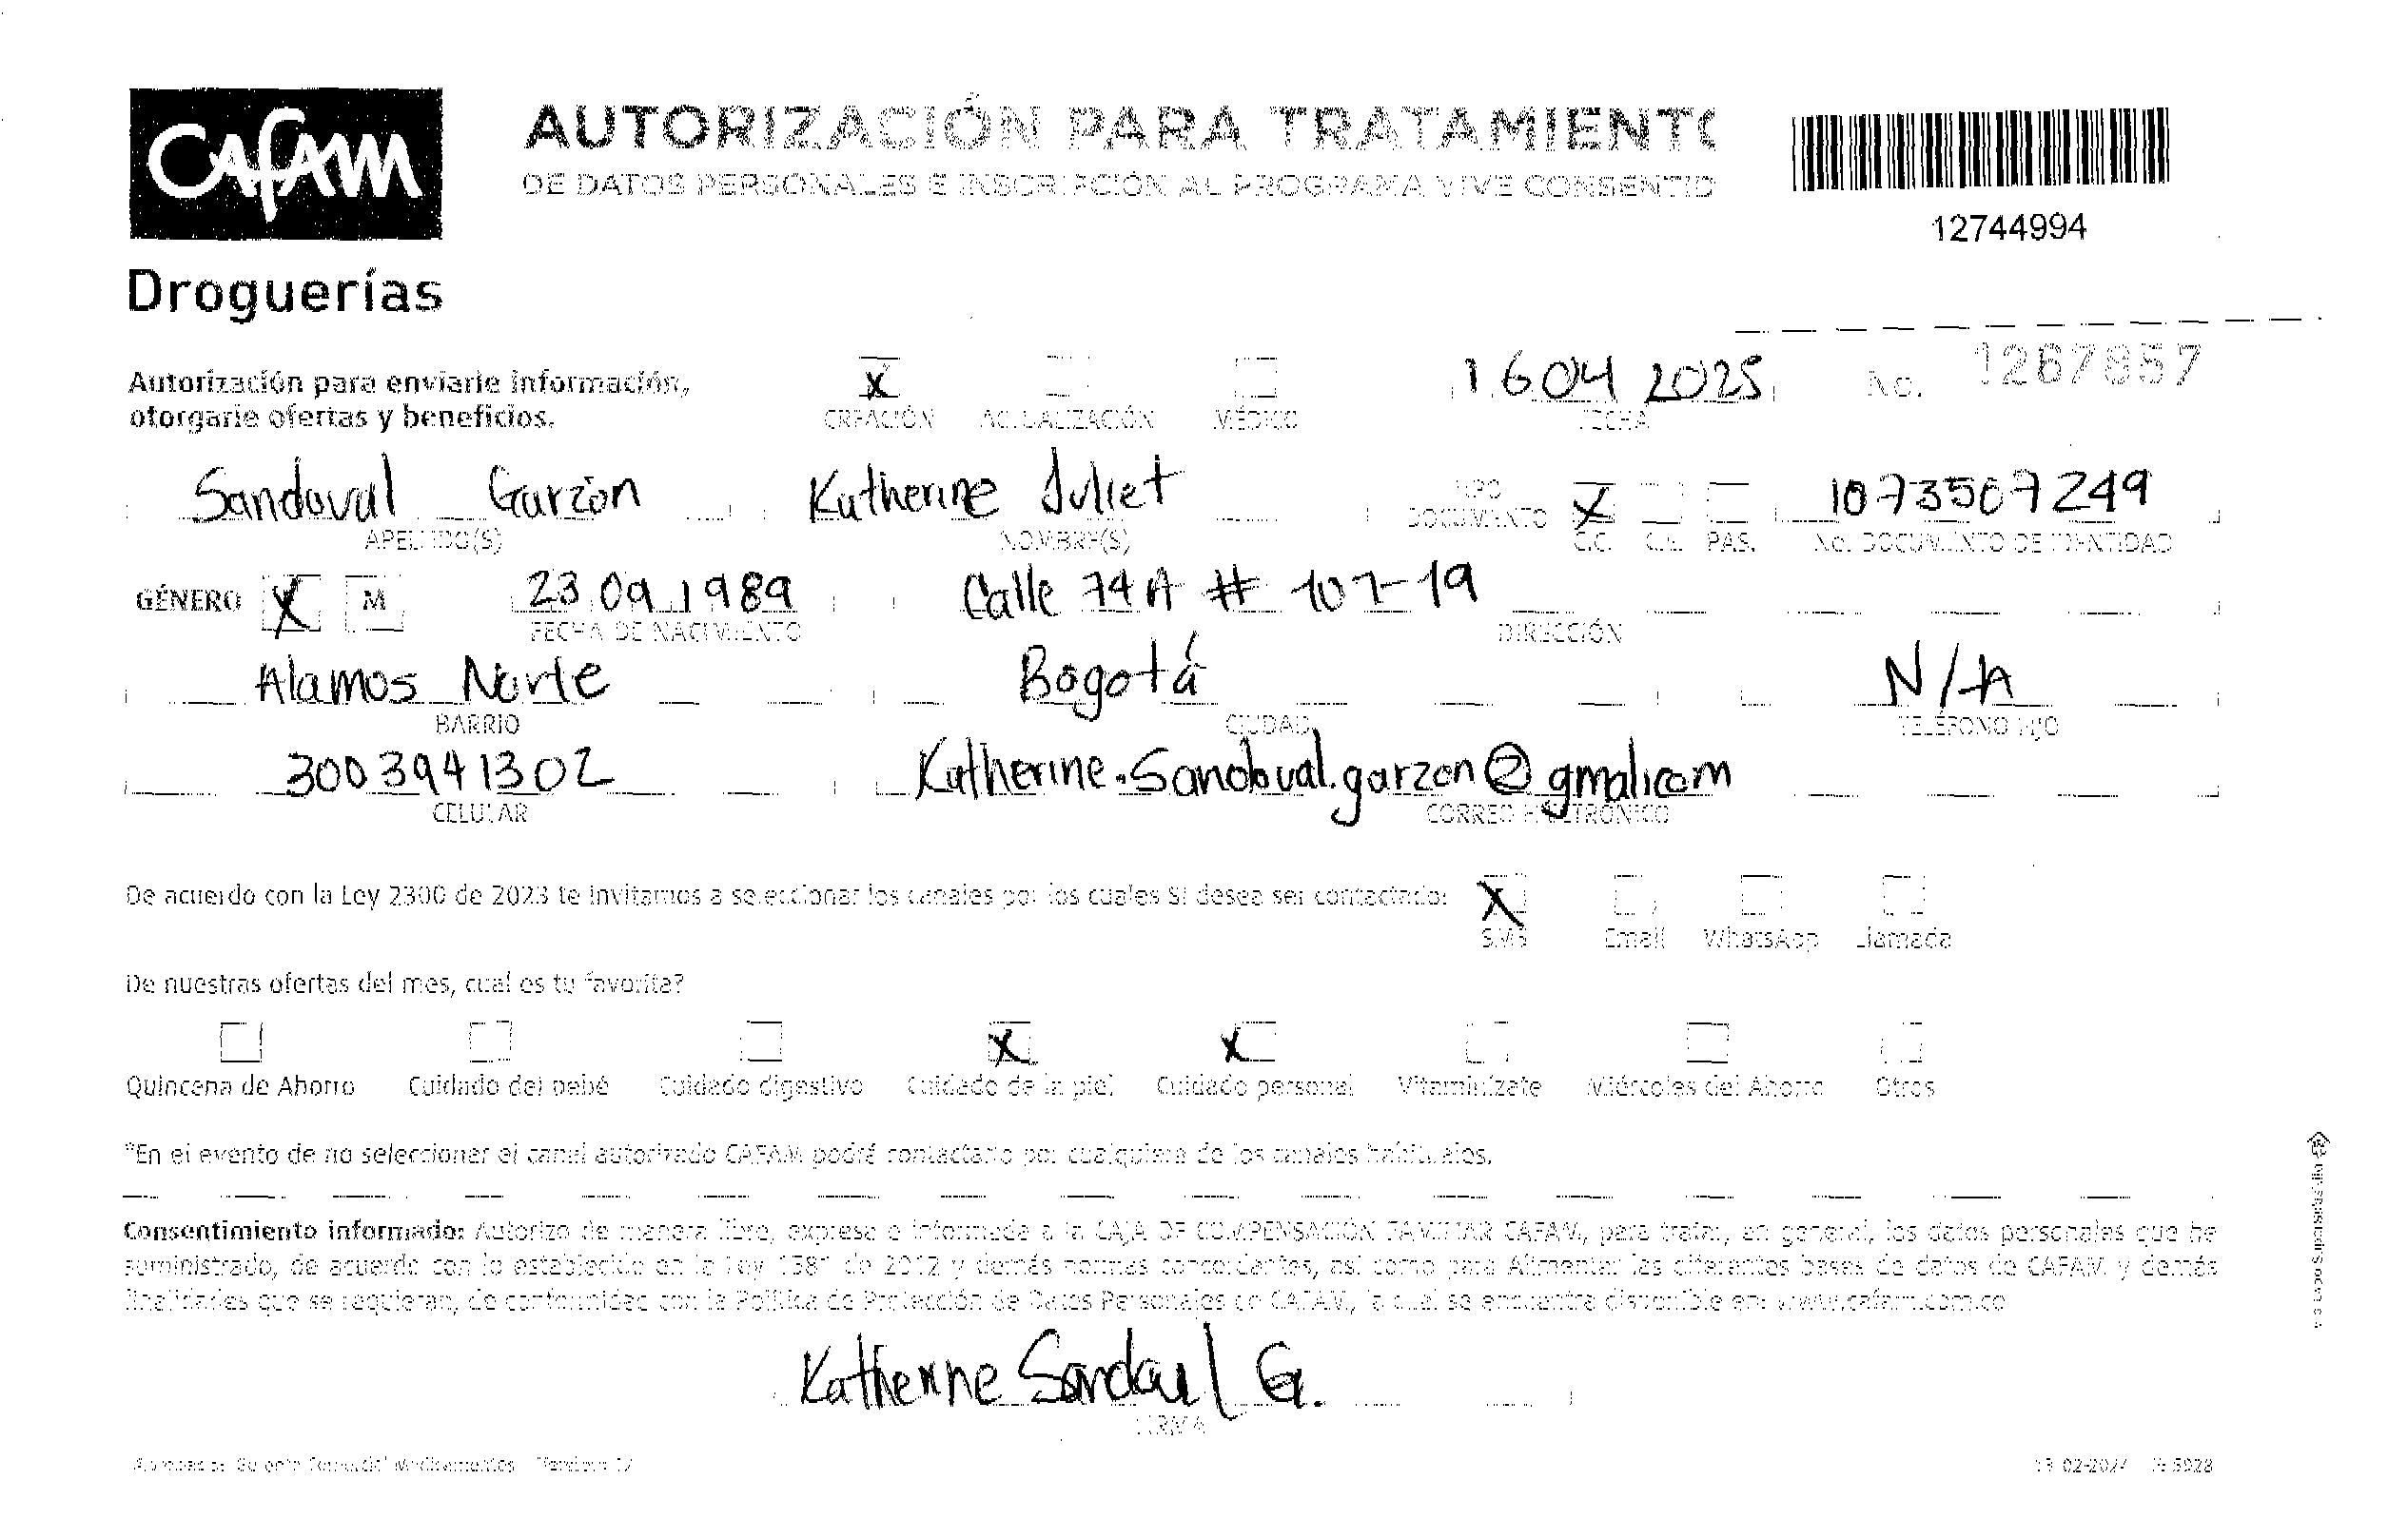 CAFAM
Droguerías
AUTORIZACIÓN PARA TRATAMIENTO
DE DATOS PERSONALES E INSCRIPCIÓN AL PROGRAMA VIVE CONSENTID
12744994
Autorización para enviarle información,
otorgarle ofertas y beneficios.
X
CREACIÓN ACTUALIZACIÓN MÉDICO
16 04 2025
FECHA
No. 1267857
Sandoval Garzón
APELLIDO(S)
Katherine Juliet
NOMBRE(S)
TIPO
DOCUMENTO
X
C.C. C.E. PAS.
1073507249
No. DOCUMENTO DE IDENTIDAD
GÉNERO X M
23 09 1989
FECHA DE NACIMIENTO
Calle 74A # 107-19
DIRECCIÓN
Alamos Norte
BARRIO
Bogotá
CIUDAD
N/A
TELÉFONO FIJO
3003941302
CELULAR
Katherine.Sandoval.garzon@gmali.com
CORREO ELECTRÓNICO
De acuerdo con la Ley 2300 de 2023 te invitamos a seleccionar los canales por los cuales SI desea ser contactado:
X
SMS Email WhatsApp Llamada
De nuestras ofertas del mes, cual es tu favorita?
X X
Quincena de Ahorro Cuidado del bebé Cuidado digestivo Cuidado de la piel Cuidado personal Vitaminízate Miércoles del Ahorro Otros
*En el evento de no seleccionar el canal autorizado CAFAM podrá contactarlo por cualquiera de los canales habituales.
Consentimiento informado: Autorizo de manera libre, expresa e informada a la CAJA DE COMPENSACIÓN FAMILIAR CAFAM, para tratar, en general, los datos personales que he
suministrado, de acuerdo con lo establecido en la Ley 1581 de 2012 y demás normas concordantes, así como para Alimentar las diferentes bases de datos de CAFAM y demás
finalidades que se requieran, de conformidad con la Política de Protección de Datos Personales de CAFAM, la cual se encuentra disponible en: www.cafam.com.co
Katherine Sandoval G.
FIRMA